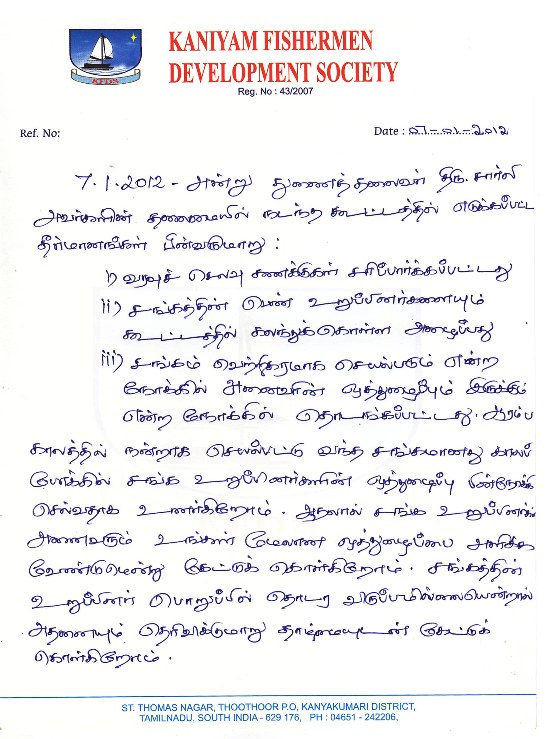 KFDS
KANIYAM FISHERMEN
DEVELOPMENT SOCIETY
Reg. No : 43/2007
Ref. No:
Date : 07-01-2012
7.1.2012 - அன்று துணைத்தலைவர் திரு. சார்லி
அவர்களின் தலைமையில் நடந்த கூட்டத்தில் எடுக்கப்பட்ட
தீர்மானங்கள் பின்வருமாறு :
i) வரவுச் செலவு கணக்குகள் சரிபார்க்கப்பட்டது
ii) சங்கத்தின் பெண் உறுப்பினர்களையும்
கூட்டத்தில் கலந்துக்கொள்ள அழைப்பது
iii) சங்கம் வெற்றிகரமாக செயல்படும் என்ற
நோக்கில் அனைவரின் ஒத்துழைப்பும் இருக்கும்
என்ற நோக்கில் தொடங்கப்பட்டது. ஆரம்ப
காலத்தில் நன்றாக செயல்பட்டு வந்த சங்கமானது காலப்
போக்கில் சங்க உறுப்பினர்களின் ஒத்துழைப்பு பின்நோக்கி
செல்வதாக உணர்கிறோம். ஆதலால் சங்க உறுப்பினர்கள்
அனைவரும் உங்கள் மேலான ஒத்துழைப்பை அளிக்க
வேண்டுமென்று கேட்டுக் கொள்கிறோம். சங்கத்தின்
உறுப்பினர் பொறுப்பில் தொடர விருப்பமில்லையென்றால்
அதனையும் தெரிவிக்குமாறு தாழ்மையுடன் கேட்டுக்
கொள்கிறோம்.
ST. THOMAS NAGAR, THOOTHOOR P.O, KANYAKUMARI DISTRICT,
TAMILNADU, SOUTH INDIA - 629 176, PH : 04651 - 242206,